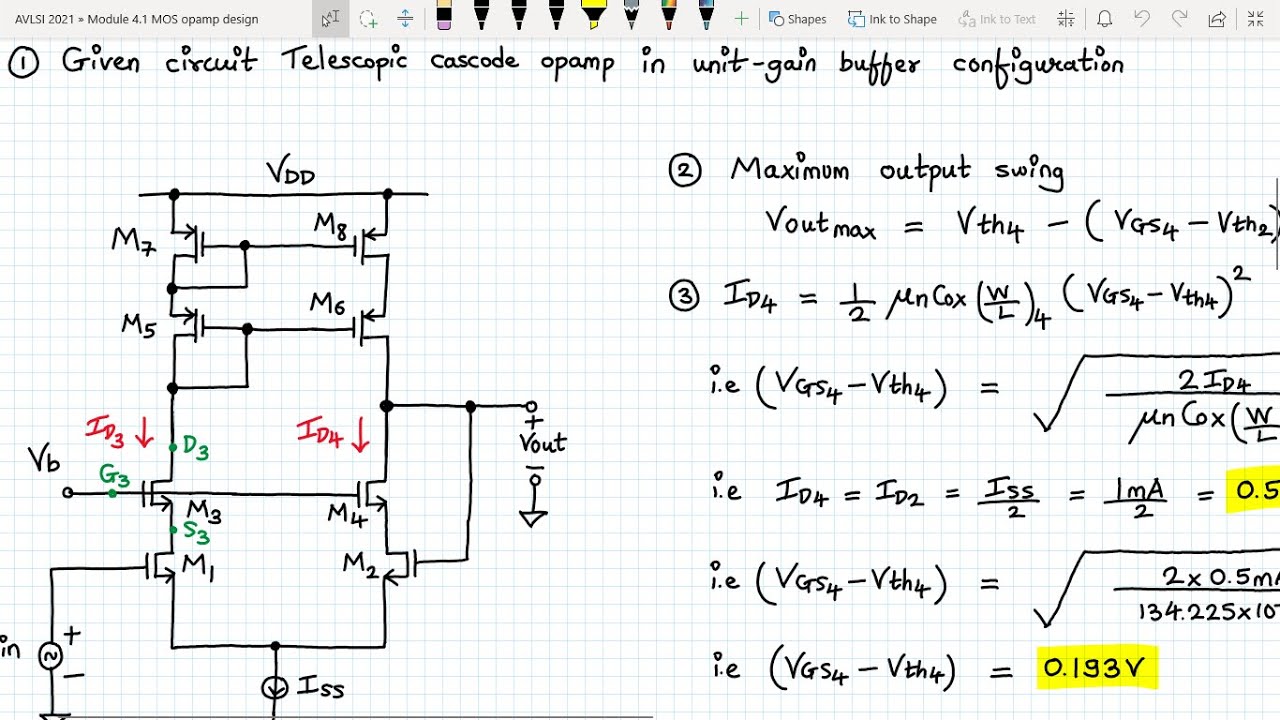 AVLSI 2021 » Module 4.1 MOS opamp design
AI
Shapes
Ink to Shape
Ink to Text
① Given circuit Telescopic cascode opamp in unit-gain buffer configuration
VDD
M7
M8
M5
M6
ID3 ↓
D3
ID4 ↓
Vb
G3
M3
S3
M4
+
Vout
−
M1
M2
in
+
∼
−
ISS
② Maximum output swing
Vout max = Vth4 − (VGS4 − Vth2)
③ ID4 = 1/2 μnCox (W/L)4 (VGS4 − Vth4)²
i.e (VGS4 − Vth4) = √ 2ID4 / μnCox (W/L
i.e ID4 = ID2 = ISS/2 = 1mA/2 = 0.5
i.e (VGS4 − Vth4) = √ 2 x 0.5mA / 134.225x10
i.e (VGS4 − Vth4) = 0.193V